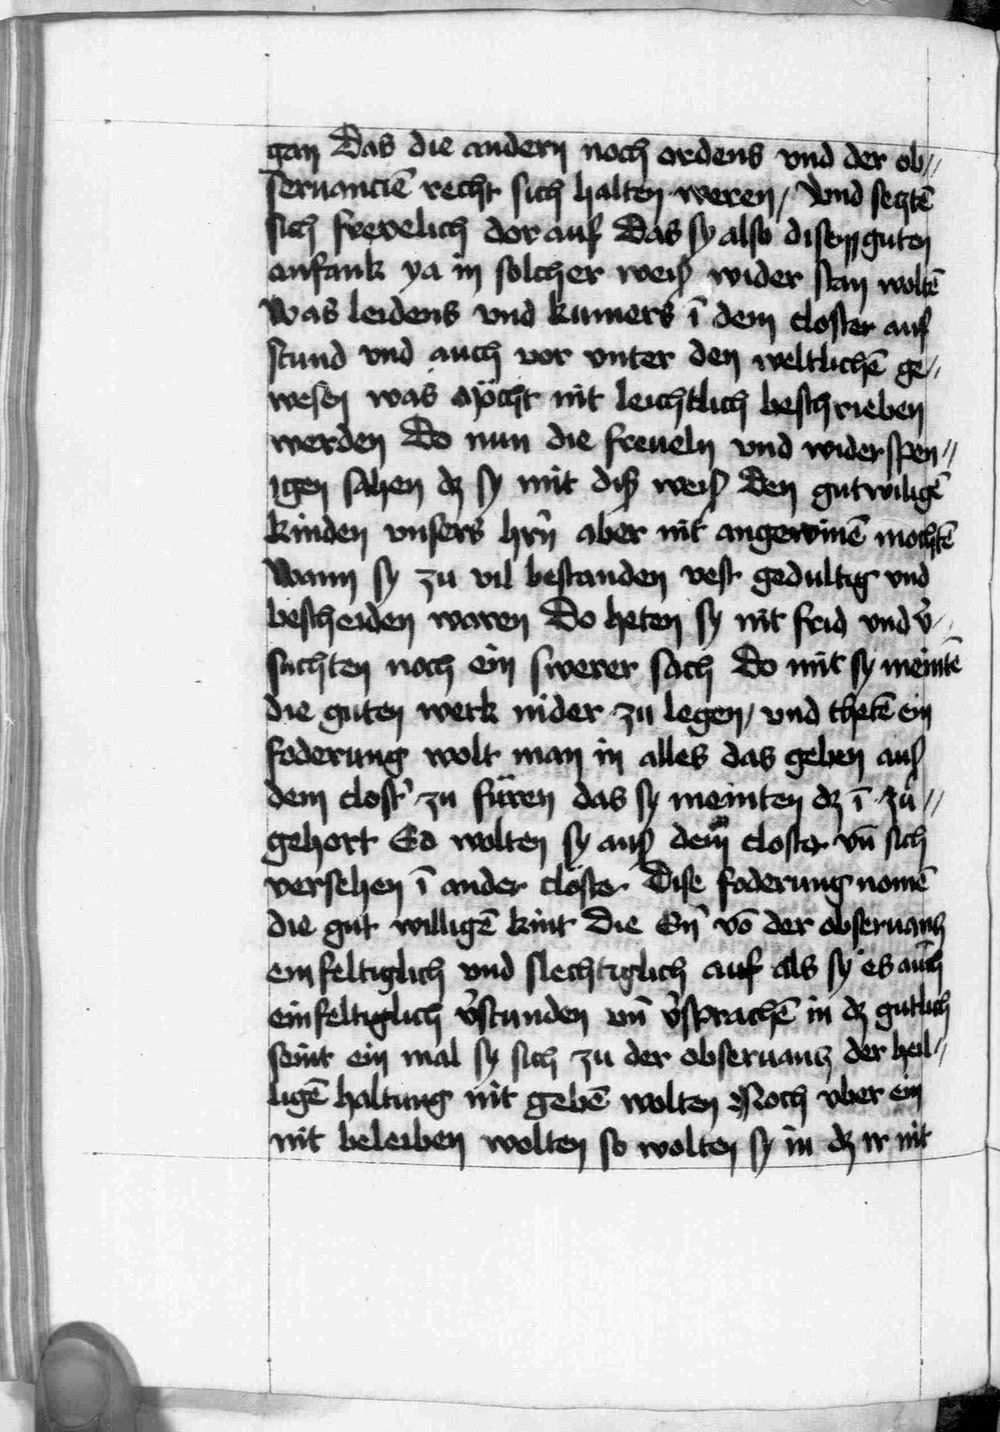 gan Das die andern noch ordens vnd der ob//
seruanciē recht sich halten weren / Vnd secztē
sich frevelich dor auf Das sy also disen guten
anfank ya in solcher weiß wider stan woltē
Was leidens vnd kumers ī dem closter auf
stund vnd auch vor vnter den weltlichē ge//
wesen was möcht nit leichtlich beschrieben
werden Do nun die freueln vnd wider spen//
igen sahen dz sy mit diß weiß Den gutwiligē
kinden vnsers hrn̄ aber nit angewinē mochtē
Wann sy zu vil bestanden vest gedultig vnd
bescheiden waren Do heten sy nit frid vnd v̓//
suchten noch ein swerer sach Do mit sy meintē
die guten werk nider zu legen / vnd thetē ein
foderung wolt man in alles das geben auß
dem clost̓ zu füren das sy meinten dz ī zu//
gehort So wolten sy auß dem closter vn̄ sich
versehen ī ander clöster Dise foderung nomē
die gut willigē kint Die Ern̓ vō der obseruancz
einfeltiglich vnd slechtiglich auf als sy es auch
einfeltiglich v̓stunden vn̄ v̓sprachē in dz gutlich
seint ein mal sy sich zu der obseruancz der heil//
ligē haltung nit gebē wolten Noch vber ein
nit beleiben wolten so wolten sy in dz ir nit